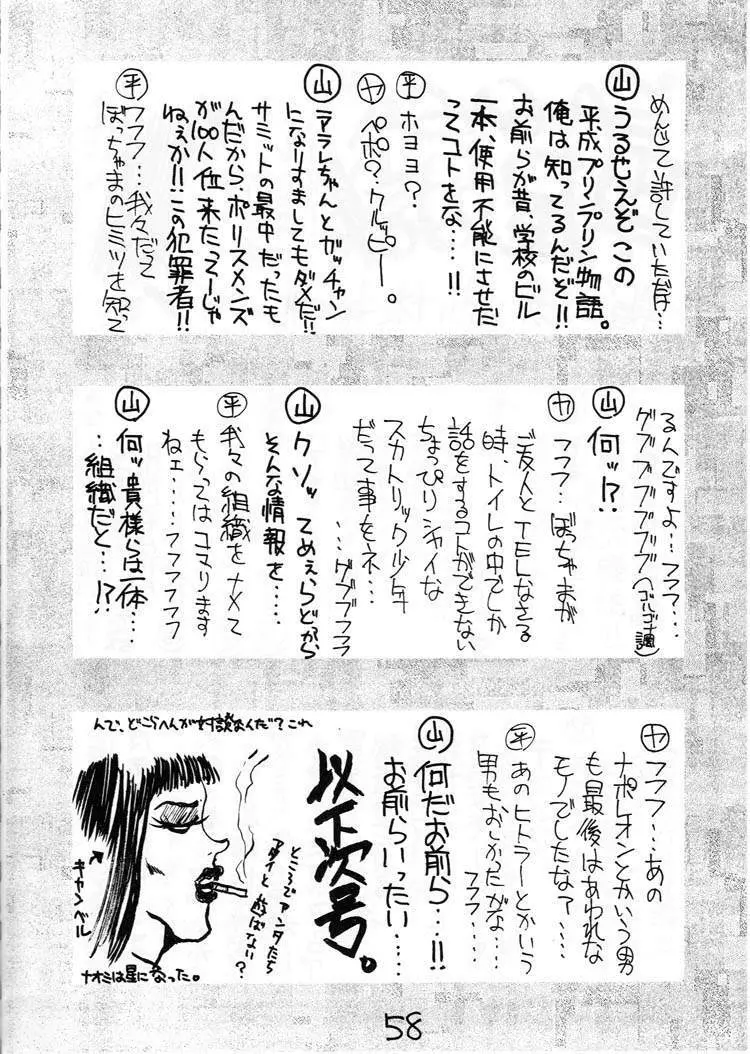 めんじて許していただけ…
㊤うるせえぞこの
平成プリンプリン物語。
俺は知ってるんだぞ!!
お前らが昔、学校のビル
一本、使用不能にさせた
ってコトをな…!!
㊥ホヨヨ?
ヤ ペポ?クルッピー。
山 アラレちゃんとガッチャン
になりすましてもダメだ!!
サミットの最中だったも
んだから、ポリスメンズ
が100人位来たってーじゃ
ねぇか!!この犯罪者!!
平 ウフフ…我々だって
ぼっちゃまのヒミツを知って
るんですよ…フフフ…
グブブブブブブ(ゴルゴナ調)
山 何ッ!?
ヤ フフフ…ぼっちゃまが
ご友人とTELしなさる
時、トイレの中でしか
話をするコトができない
ちょっぴりシャイな
スカトリック少年
だって事をネ…
…グブブフフフ
山 クソッてめぇらどから
そんな情報を……
平 我々の組織をナメて
もらってはコマリます
ねェ……フフフフフ
山 何ッ貴様らは一体……
…組織だと…!?
ヤ フフフ…あの
ナポレオンとかいう男
も最後はあわれな
モノでしたなァ……
平 あのヒトラーとかいう
男もおしかったがな…
フフフ…
山 何だお前ら…!!
お前らいったい……
以下次号。
んで、どこらへんが対談なんだ?これ
ところでアンタたち
アタイと遊ばない?
キャンベル
ナオミは星になった。
58